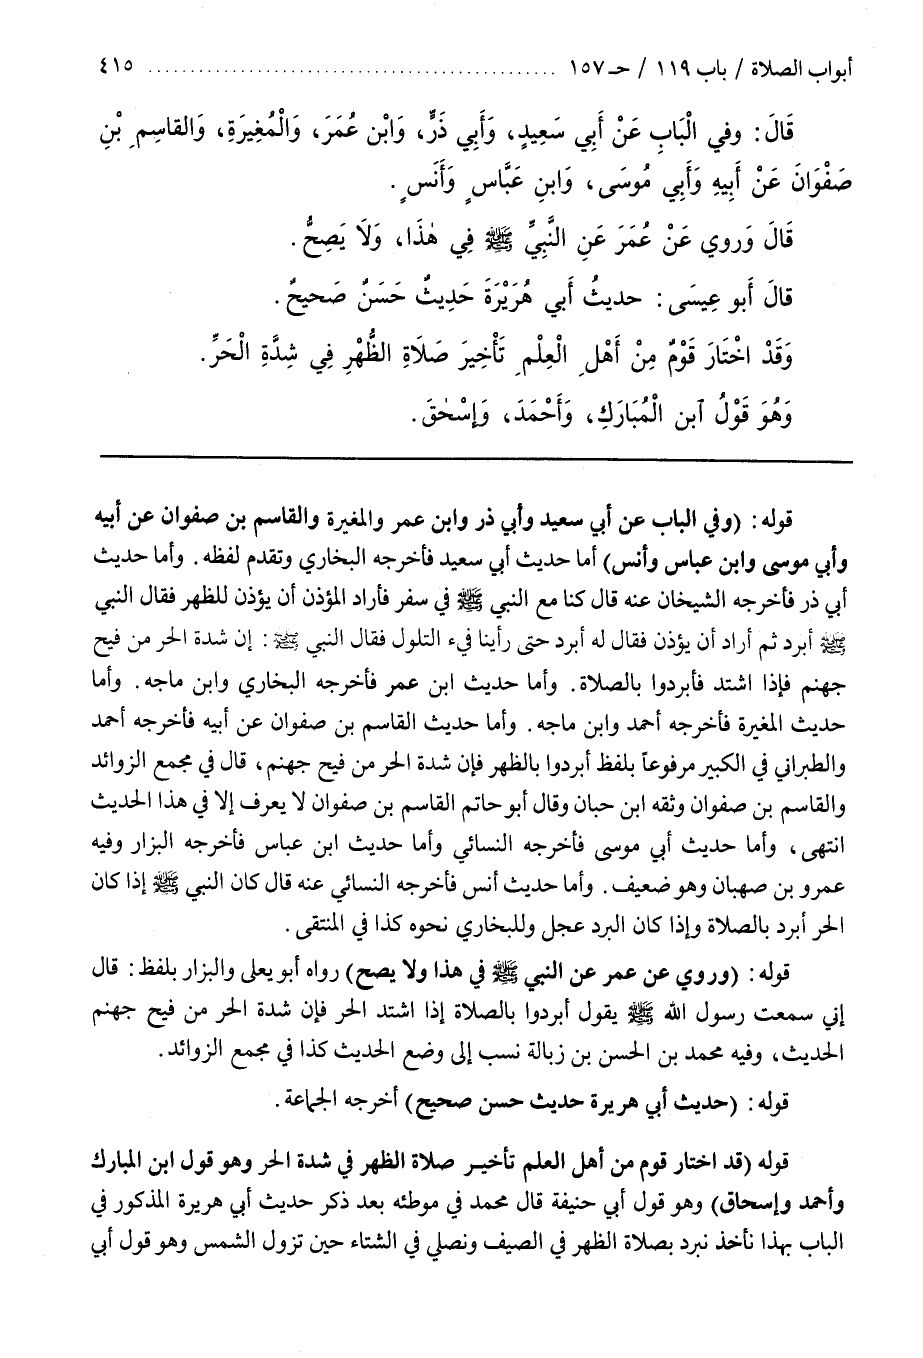 أبواب الصلاة / باب ١١٩ / حـ ١٥٧ ................................................ ٤١٥
قَالَ: وفي الْبَابِ عَنْ أَبِي سَعِيدٍ، وَأَبِي ذَرٍّ، وَابْنِ عُمَرَ، وَالْمُغِيرَةِ، وَالقاسِمِ بْنِ
صَفْوَانَ عَنْ أَبِيهِ وَأَبِي مُوسَى، وَابنِ عَبَّاسٍ وَأَنَسٍ.
قَالَ وَروي عَنْ عُمَرَ عَنِ النَّبِيِّ ﷺ فِي هٰذَا، وَلَا يَصِحُّ.
قالَ أَبو عِيسَى: حديثُ أَبي هُرَيْرَةَ حَدِيثٌ حَسَنٌ صَحيحٌ.
وَقَدْ اخْتَارَ قَوْمٌ مِنْ أَهْلِ الْعِلْمِ تَأْخِيرَ صَلَاةِ الظُّهْرِ فِي شِدَّةِ الْحَرِّ.
وَهُوَ قَوْلُ ٱبن الْمُبَارَكِ، وَأَحْمَدَ، وَإِسْحٰقَ.
قوله: (وفي الباب عن أبي سعيد وأبي ذر وابن عمر والمغيرة والقاسم بن صفوان عن أبيه
وأبي موسى وابن عباس وأنس) أما حديث أبي سعيد فأخرجه البخاري وتقدم لفظه. وأما حديث
أبي ذر فأخرجه الشيخان عنه قال كنا مع النبي ﷺ في سفر فأراد المؤذن أن يؤذن للظهر فقال النبي
ﷺ أبرد ثم أراد أن يؤذن فقال له أبرد حتى رأينا فيء التلول فقال النبي ﷺ: إن شدة الحر من فيح
جهنم فإذا اشتد فأبردوا بالصلاة. وأما حديث ابن عمر فأخرجه البخاري وابن ماجه. وأما
حديث المغيرة فأخرجه أحمد وابن ماجه. وأما حديث القاسم بن صفوان عن أبيه فأخرجه أحمد
والطبراني في الكبير مرفوعاً بلفظ أبردوا بالظهر فإن شدة الحر من فيح جهنم، قال في مجمع الزوائد
والقاسم بن صفوان وثقه ابن حبان وقال أبو حاتم القاسم بن صفوان لا يعرف إلا في هذا الحديث
انتهى، وأما حديث أبي موسى فأخرجه النسائي وأما حديث ابن عباس فأخرجه البزار وفيه
عمرو بن صهبان وهو ضعيف. وأما حديث أنس فأخرجه النسائي عنه قال كان النبي ﷺ إذا كان
الحر أبرد بالصلاة وإذا كان البرد عجل وللبخاري نحوه كذا في المنتقى.
قوله: (وروي عن عمر عن النبي ﷺ في هذا ولا يصح) رواه أبو يعلى والبزار بلفظ: قال
إني سمعت رسول الله ﷺ يقول أبردوا بالصلاة إذا اشتد الحر فإن شدة الحر من فيح جهنم
الحديث، وفيه محمد بن الحسن بن زبالة نسب إلى وضع الحديث كذا في مجمع الزوائد.
قوله: (حديث أبي هريرة حديث حسن صحيح) أخرجه الجماعة.
قوله (قد اختار قوم من أهل العلم تأخير صلاة الظهر في شدة الحر وهو قول ابن المبارك
وأحمد وإسحاق) وهو قول أبي حنيفة قال محمد في موطئه بعد ذكر حديث أبي هريرة المذكور في
الباب بهذا نأخذ نبرد بصلاة الظهر في الصيف ونصلي في الشتاء حين تزول الشمس وهو قول أبي